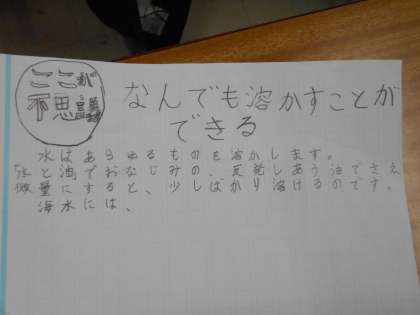 ここが
不思議
なんでも溶かすことが
できる
水はあらゆるものを溶かします。
「水と油でおなじみの、反発しあう油でさえ
微量にすると、少しばかり溶けるのです。
海水には、